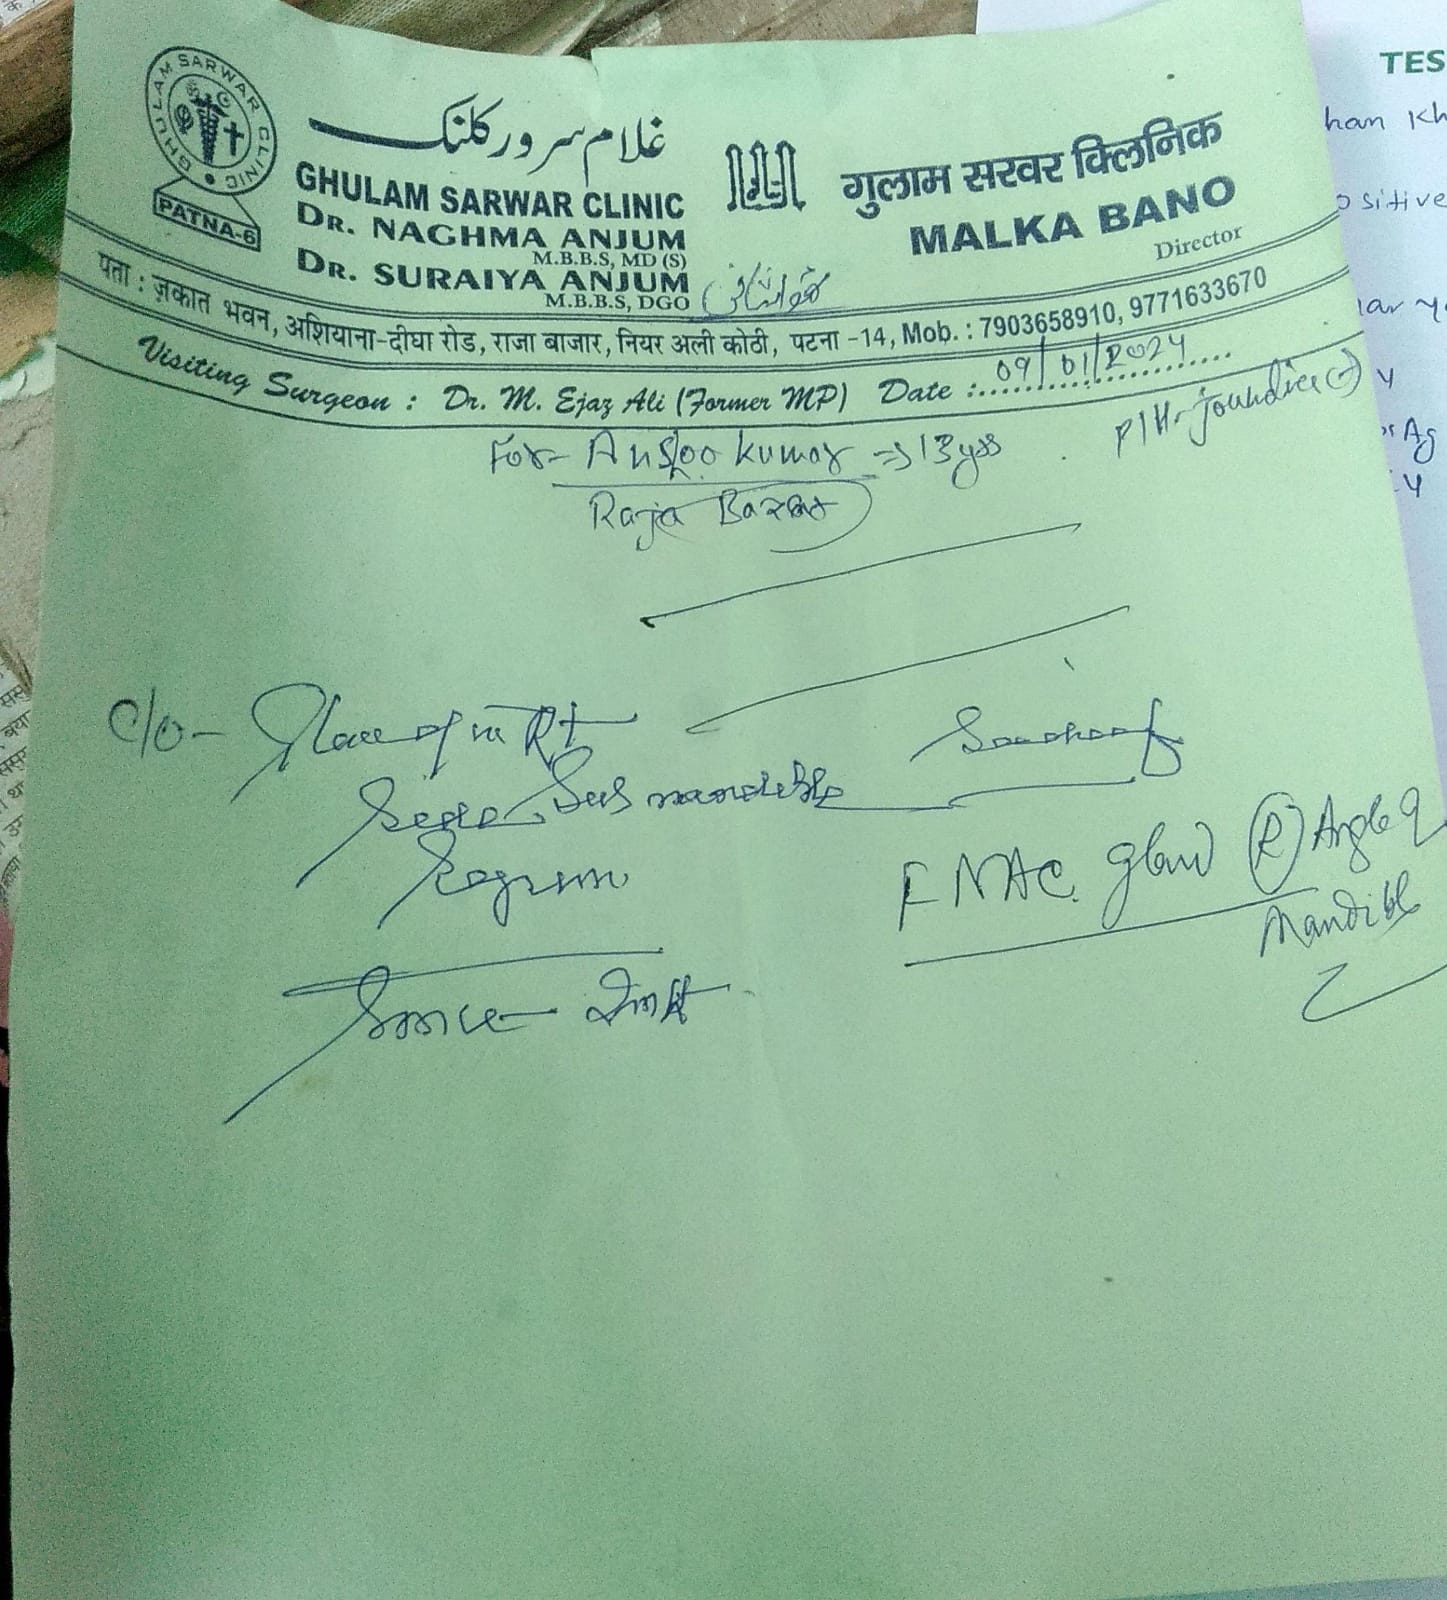 GHULAM SARWAR CLINIC
PATNA-6
غلام سرور کلنک
GHULAM SARWAR CLINIC
DR. NAGHMA ANJUM
M.B.B.S, MD (S)
DR. SURAIYA ANJUM
M.B.B.S, DGO
गुलाम सरवर क्लिनिक
MALKA BANO
Director
पता : ज़कात भवन, अशियाना-दीघा रोड, राजा बाजार, नियर अली कोठी, पटना -14, Mob. : 7903658910, 9771633670
Visiting Surgeon : Dr. M. Ejaz Ali (Former MP) Date :.... 09/01/2024 ....
P/H- Joundice (-)
For- Anshoo Kumar => 13 yrs
Raja Bazar
C/O- Gland in Rt
Sub mandible
Region
Since
FNAC gland (R) Angle of
Mandible
TES
han Kh
ositive